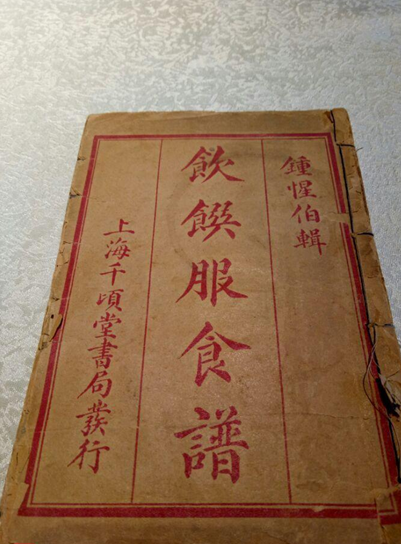 鍾惺伯輯
飲饌服食譜
上海千頃堂書局發行